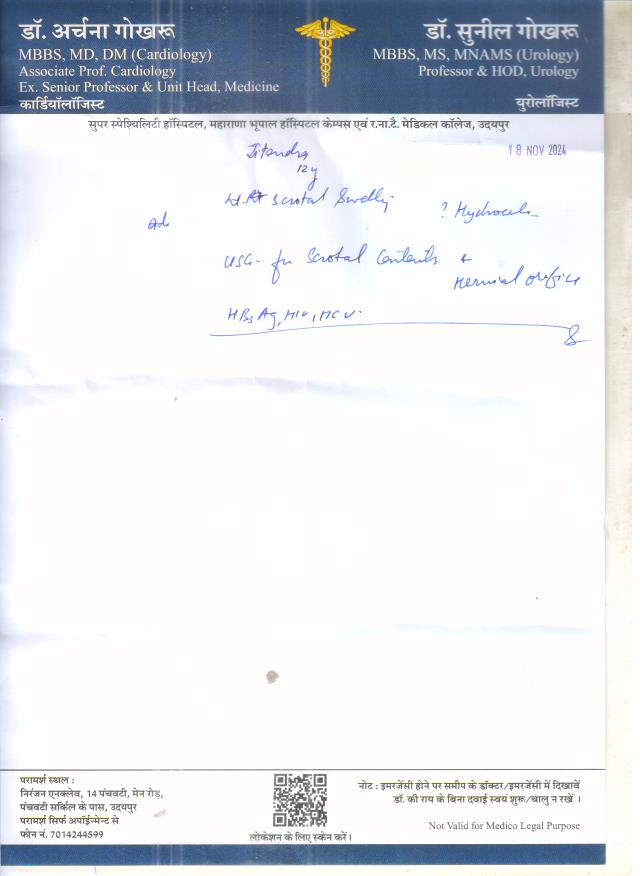 डॉ. अर्चना गोखरू
MBBS, MD, DM (Cardiology)
Associate Prof. Cardiology
Ex. Senior Professor & Unit Head, Medicine
कार्डियॉलॉजिस्ट
डॉ. सुनील गोखरू
MBBS, MS, MNAMS (Urology)
Professor & HOD, Urology
युरोलॉजिस्ट
सुपर स्पेश्यिलिटी हॉस्पिटल, महाराणा भूपाल हॉस्पिटल केम्पस एवं र.ना.टै. मेडिकल कॉलेज, उदयपुर
18 NOV 2024
Jitendra
12 y
Scrotal Swelling ? Hydrocele
Adv
USG - for Scrotal Contents &
Hernial orifice
HBsAg, HIV, HCV.
परामर्श स्थल :
निरंजन एनक्लेव, 14 पंचवटी, मेन रोड़,
पंचवटी सर्किल के पास, उदयपुर
परामर्श सिर्फ अपॉईन्मेन्ट से
फोन नं. 7014244599
लोकेशन के लिए स्केन करें।
नोट : इमरजेंसी होने पर समीप के डॉक्टर/इमरजेंसी में दिखावें
डॉ. की राय के बिना दवाई स्वयं शुरू/चालु न रखें ।
Not Valid for Medico Legal Purpose